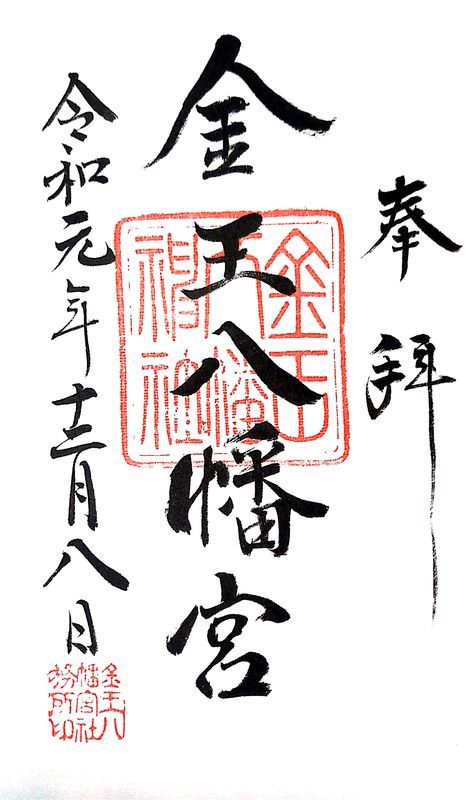 奉拝
金王八幡宮
金王八幡神社
令和元年十二月八日
金王八幡宮社務所印